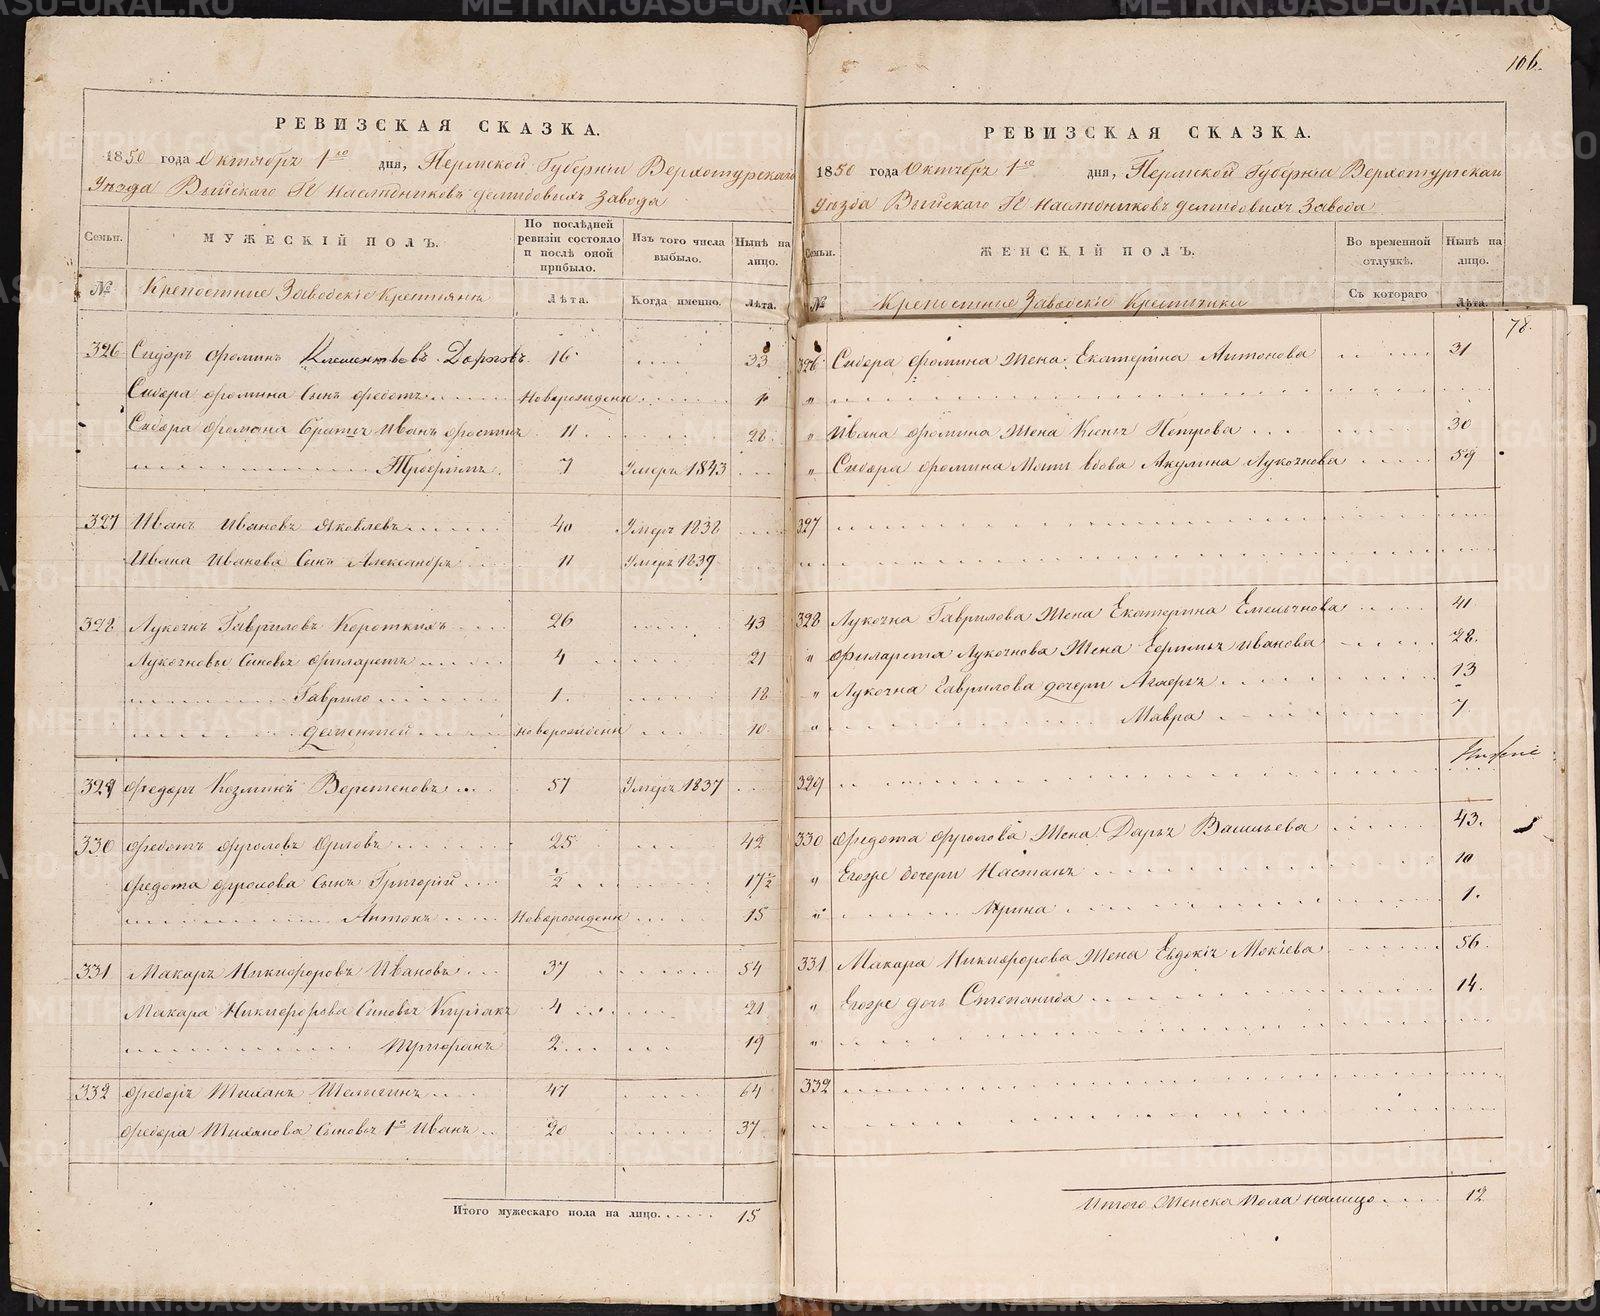 106.
РЕВИЗСКАЯ СКАЗКА.
1850 года Октября 1го дня, Пермской Губерніи Верхотурскаго
Уѣзда Выйскаго Гг Наслѣдниковъ Демидовыхъ Завода
Семьи. МУЖЕСКІЙ ПОЛЪ. По послѣдней ревизіи состояло и послѣ оной прибыло. Изъ того числа выбыло. Нынѣ на лицо.
№ Крепостные Заводскіе Крестьяне Лѣта. Когда именно. Лѣта.
326 Сидоръ Фоминъ 16 .... 33
Сидора Фомина Сынъ Федотъ Новорожденн
Сидора Фомина Братья Иванъ Фоминъ 11 28
Трофимъ. 7 Умеръ 1843
327 Иванъ Ивановъ Яковлевъ 40 Умеръ 1838
Ивана Иванова Сынъ Александръ 11 Умеръ 1839
328 Лукоянъ Гавриловъ Короткихъ 26 43
Лукояновы Сыновья Филаретъ 4 21
Гаврило 1. 18
Дементей новорожденн 10
329 Федоръ Козминъ Веретеновъ 57 Умеръ 1837
330 Федотъ Фроловъ Орловъ 25 42
Федота Фролова Сынъ Григорій ½ 17½
Антонъ Новорожденн 15
331 Макаръ Никифоровъ Ивановъ 37 54
Макара Никифорова Сыновья Кирьякъ 4 21
Трифонъ 2 19
332 Федоръ 47 64
Федора Сыновья 1й Иванъ 20 37
Итого мужескаго пола на лицо...... 15
РЕВИЗСКАЯ СКАЗКА.
1850 года Октября 1го дня, Пермской Губерніи Верхотурскаго
Уѣзда Выйскаго Гг Наслѣдниковъ Демидовыхъ Завода
Семьи. ЖЕНСКІЙ ПОЛЪ. Во временной отлучкѣ. Нынѣ на лицо.
№ Крепостные Заводскіе Крестьянки Съ котораго Лѣта.
78.
326 Сидора Фомина Жена Екатерина Антонова 31
" Ивана Фомина Жена Ксенья Петрова 30
" Сидора Фомина Мать вдова Акулина Лукоянова 59
327
328 Лукояна Гаврилова Жена Екатерина Емельянова 41
" Филарета Лукоянова Жена Ефимья Иванова 28.
" Лукояна Гаврилова дочери Агафья 13
" Мавра 7
329
330 Федота Фролова Жена Дарья Васильева 43.
" Егоже дочери Настасья 10
" Ирина 1.
331 Макара Никифорова Жена Евдокія Мокіева 56.
" Егоже дочь Степанида 14.
332
Итого Женска Пола налицо 12
METRIKI.GASO-URAL.RU